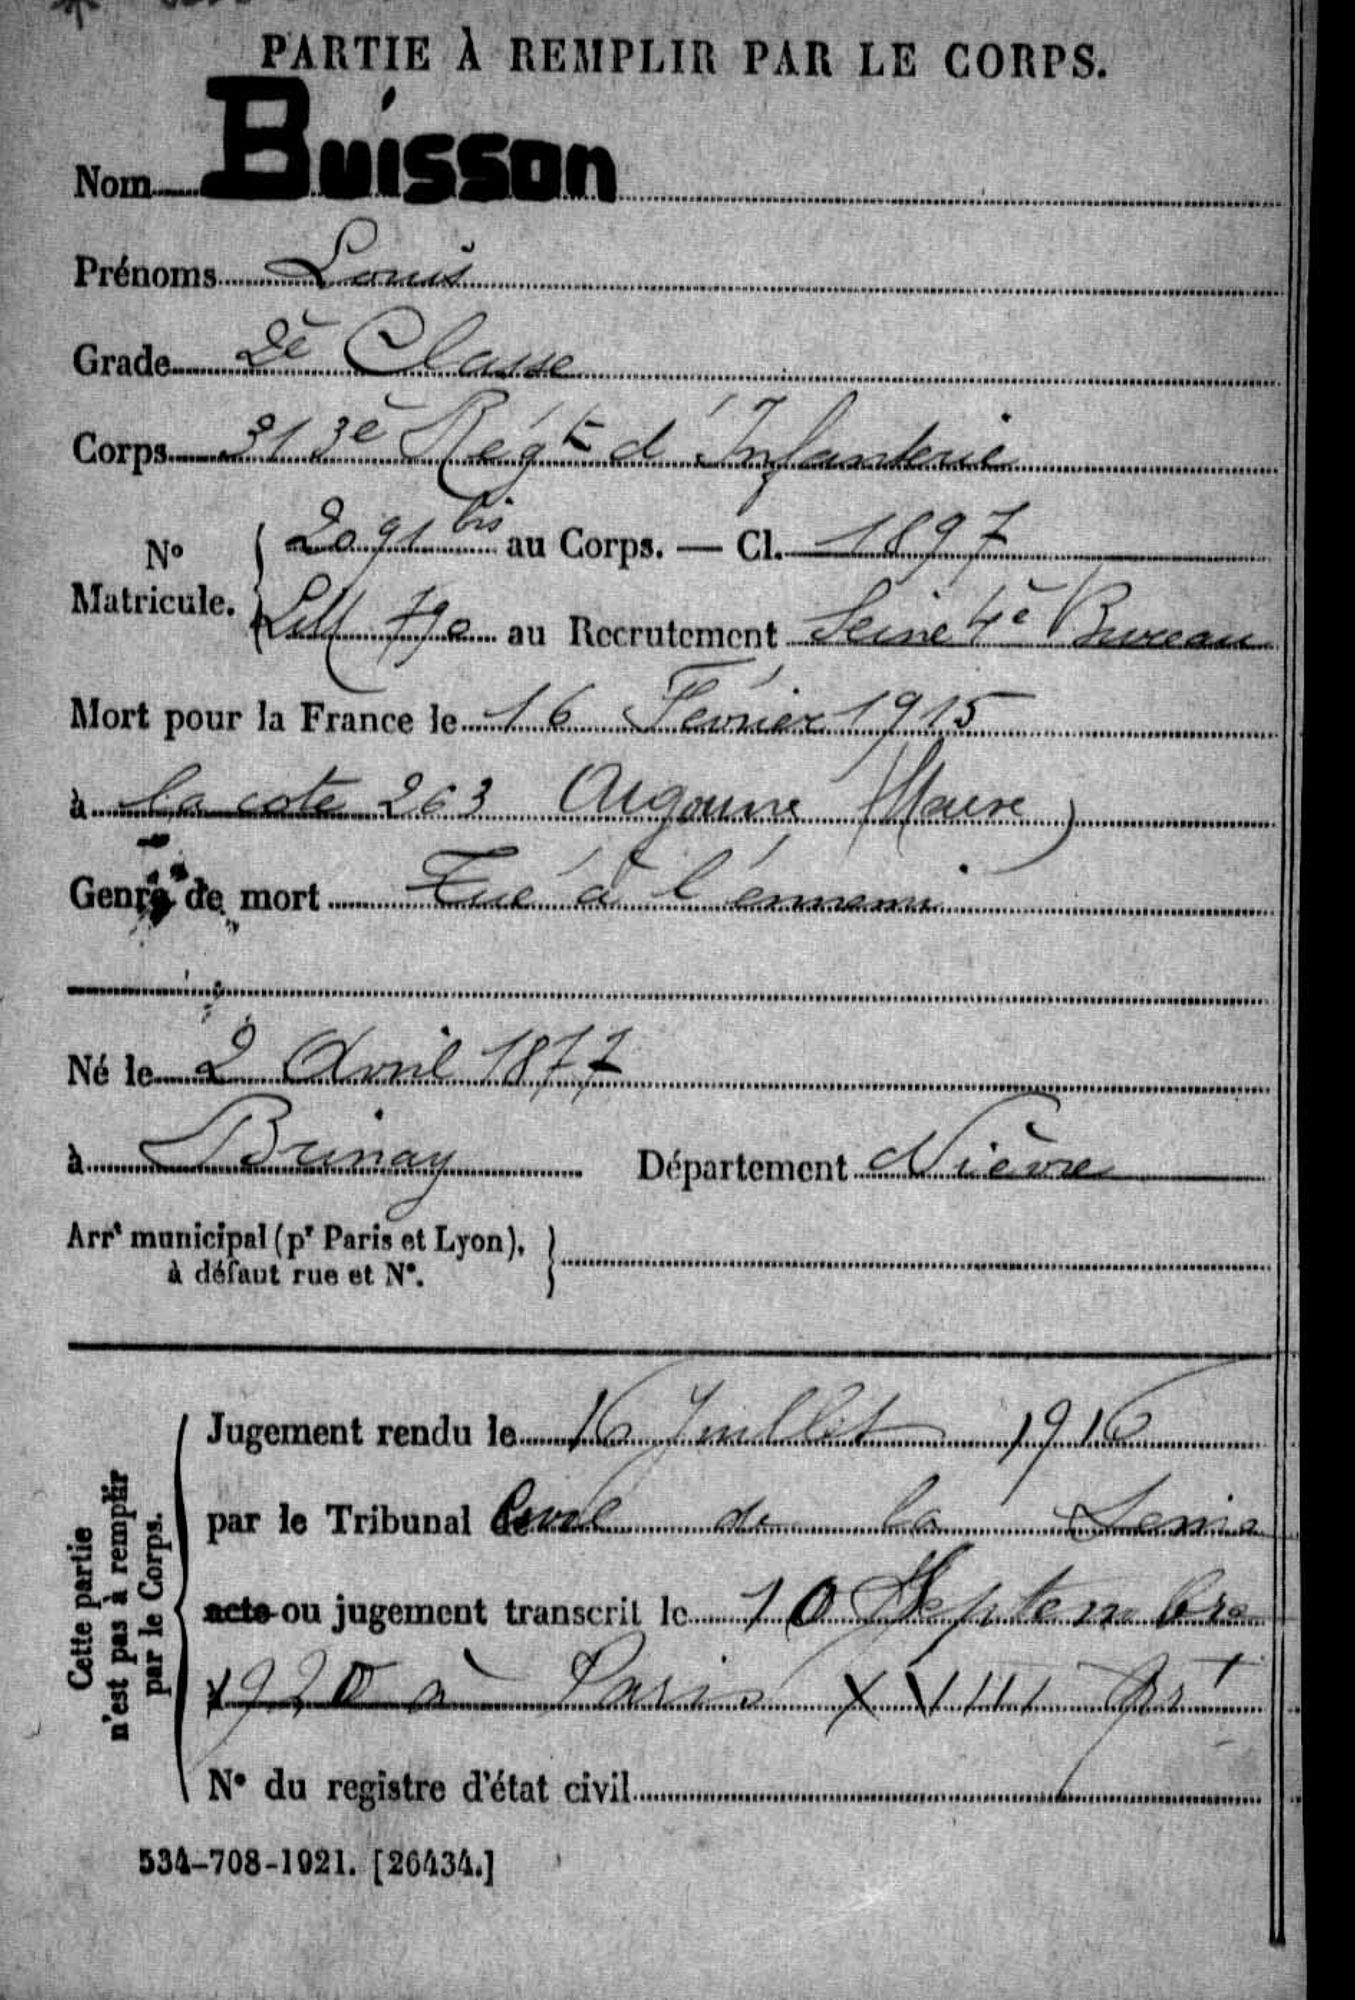 PARTIE À REMPLIR PAR LE CORPS.
Nom Buisson
Prénoms Louis
Grade 2è Classe
Corps 313è Régt d'Infanterie
No Matricule. { 2091 bis au Corps. — Cl. 1897
790 au Recrutement Seine 4è Bureau
Mort pour la France le 16 Février 1915
à la cote 263 Argonne (Meuse)
Genre de mort Tué à l'énnemi
Né le 2 Avril 1877
à Brinay Département Nièvre
Arrt municipal (pr Paris et Lyon), }
à défaut rue et N°.
Cette partie
n'est pas à remplir
par le Corps.
Jugement rendu le 16 Juillet 1916
par le Tribunal de Civil de la Seine
acte ou jugement transcrit le 10 Septembre
1920 à Paris XVIII Art
N° du registre d'état civil
534-708-1921. [26434.]